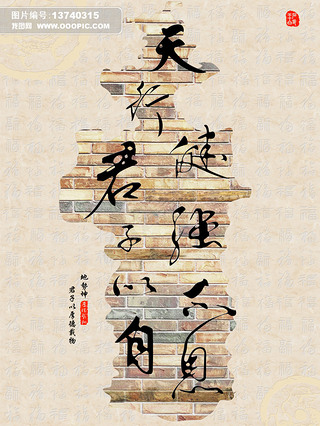 图片编号:13740315
我图网 www.OOOPIC.com
天行健
君子以自強不息
地勢坤
君子以厚德載物